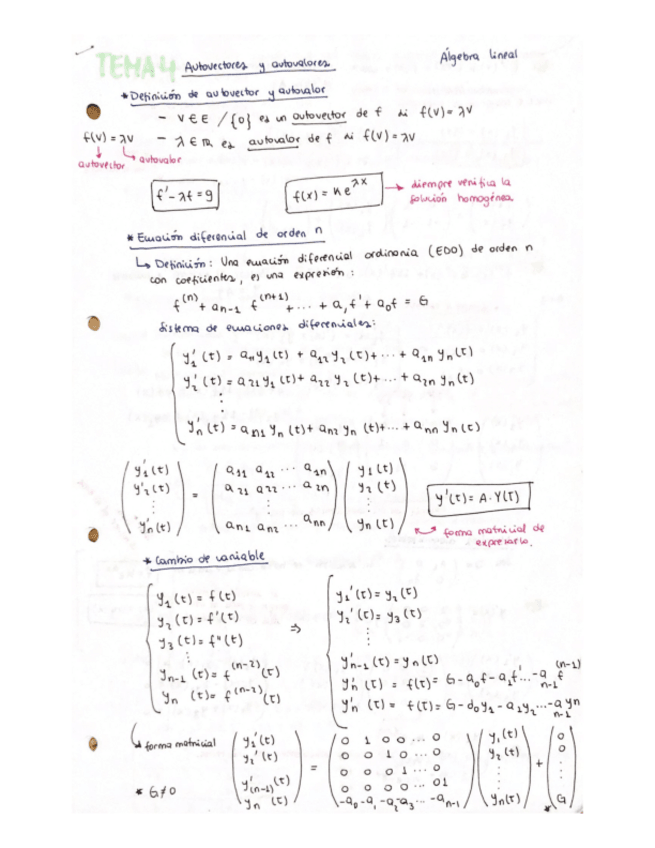 TEMA 4 Autovectores y autovalores Álgebra lineal
* Definición de autovector y autovalor
- V ∈ E / {0} es un autovector de f si f(v) = λv
f(v) = λv - λ ∈ ℝ es autovalor de f si f(v) = λv
autovector autovalor
f' - λf = g f(x) = K e^{λx} → siempre verifica la solución homogénea.
* Ecuación diferencial de orden n
↳ Definición: Una ecuación diferencial ordinaria (EDO) de orden n
con coeficientes, es una expresión:
f^(n) + a_{n-1} f^(n+1) + ... + a_1 f' + a_0 f = G
sistema de ecuaciones diferenciales:
y_1'(t) = a_{11} y_1(t) + a_{12} y_2(t) + ... + a_{1n} y_n(t)
y_2'(t) = a_{21} y_1(t) + a_{22} y_2(t) + ... + a_{2n} y_n(t)
⋮
y_n'(t) = a_{n1} y_n(t) + a_{n2} y_n(t) + ... + a_{nn} y_n(t)
y_1'(t) a_{11} a_{12} ... a_{1n} y_1(t)
y_2'(t) = a_{21} a_{22} ... a_{2n} y_2(t) y'(t) = A · Y(t)
⋮ ⋮ ⋮
y_n'(t) a_{n1} a_{n2} ... a_{nn} y_n(t) forma matricial de expresarlo.
* Cambio de variable
y_1(t) = f(t) y_1'(t) = y_2(t)
y_2(t) = f'(t) y_2'(t) = y_3(t)
y_3(t) = f''(t) ⇒ ⋮
⋮
y_{n-1}(t) = f^(n-2)(t) y'_{n-1}(t) = y_n(t)
y_n(t) = f^(n-1)(t) y_n'(t) = f(t) = G - a_0 f - a_1 f' ... - a_{n-1} f^(n-1)
y_n'(t) = f(t) = G - a_0 y_1 - a_1 y_2 ... - a_{n-1} y_n
↳ forma matricial y_1'(t) 0 1 0 0 ... 0 y_1(t) 0
y_2'(t) 0 0 1 0 ... 0 y_2(t) 0
⋮ = 0 0 0 1 ... 0 ⋮ + ⋮
* G ≠ 0 y'_{(n-1)}(t) 0 0 0 0 ... 0 1 ⋮
y_n(t) -a_0 -a_1 -a_2 -a_3 ... -a_{n-1} y_n(t) * G